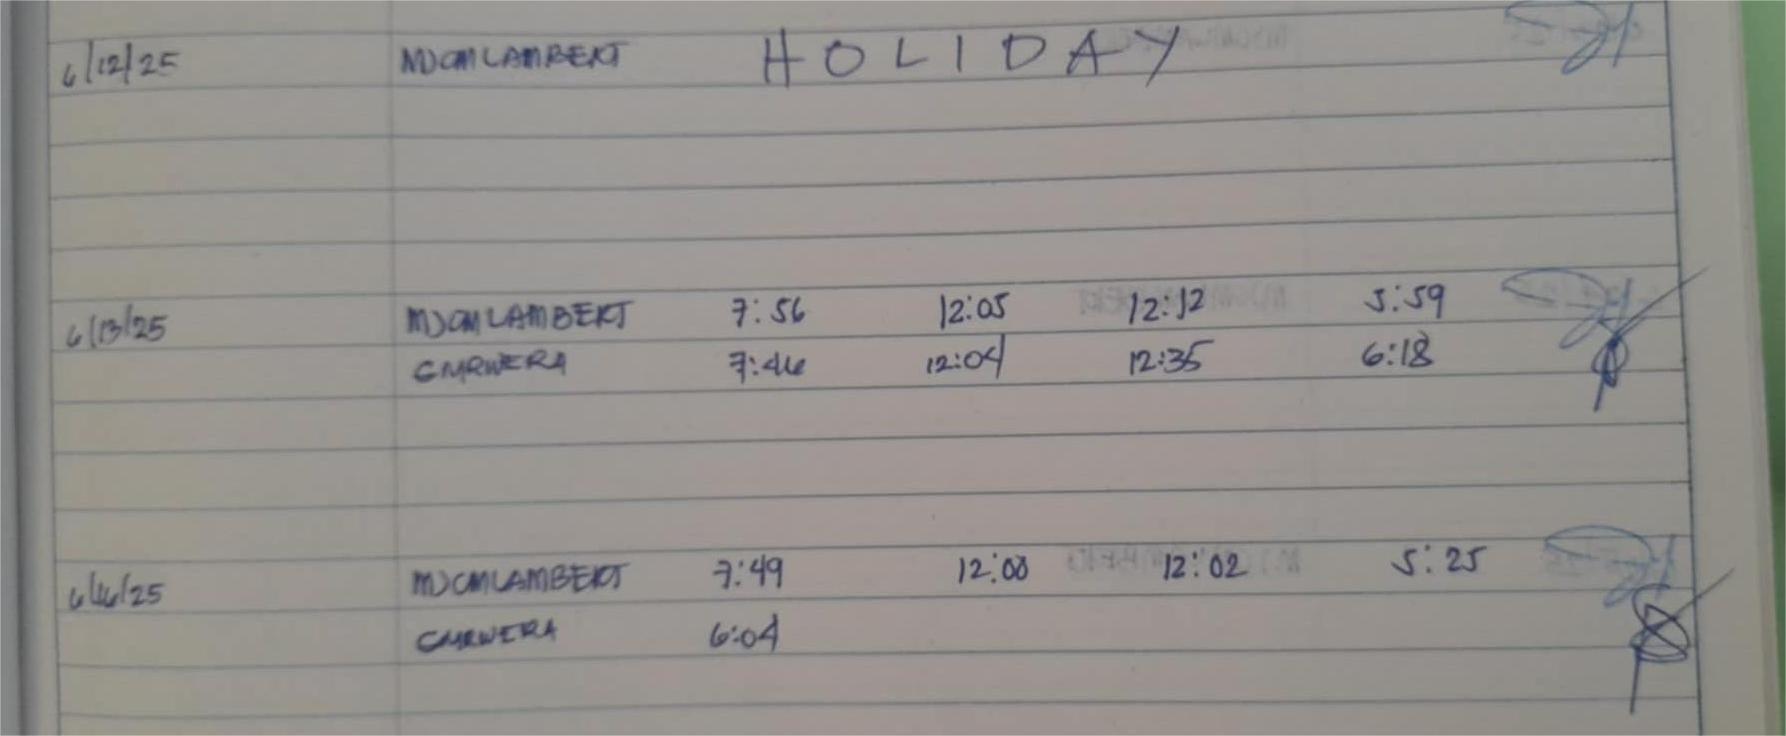 6/12/25 MJCMLAMBERT HOLIDAY
6/13/25 MJCMLAMBERT 7:56 12:05 12:12 5:59
CMRWERA 7:46 12:04 12:35 6:18
6/16/25 MJCMLAMBERT 7:49 12:00 12:02 5:25
CMRWERA 6:04